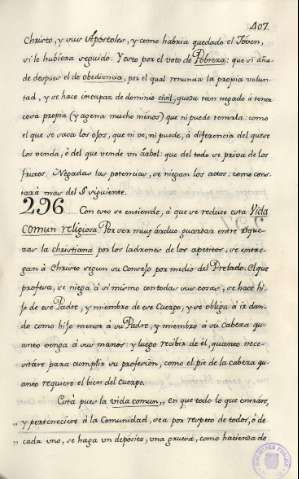 407.
Christo, y sus Apóstoles, y como habria quedado el Jóven,
si le hubiera seguido. Y esto por el voto de Pobreza: que si aña-
de despues el de obediencia, por el qual renuncia la propia volun-
tad, y se hace incapaz de dominio civil, queda tan negado á tener
cosa propia (y agena mucho menos) que ni puede tenerla: como
el que se saca los ojos, que ni ve, ni puede, á diferencia del que se
los venda, é del que vende un árbol: que del todo se priva de los
frutos. Negadas las potencias, se niegan los actos, como cons-
tará mas del § siguiente.
296 Con esto se entiende, á que se reduce esta Vida
comun religiosa. Por ser muy árduo guardar entre
la christiana por los ladrones de los apetitos, se entre-
gan á Christo segun su Consejo por medio del Prelado. El que
profesa, se niega á sí mismo con todas sus cosas, se hace hi-
jo de ese Padre, y miembro de ese Cuerpo, y se obliga á ir dan-
do como hijo menor á su Padre, y miembro á su Cabeza qu-
anto venga á sus manos: y luego recibir de él, quanto nece-
sitáre para cumplir su profesion, como el pie de la cabeza qu-
anto requiere el bien del Cuerpo.
Está pues la vida comun „ en que todo lo que entráre,
„ y perteneciere á la Comunidad, sea por respeto de todos, ó de
„ cada uno, se haga un depósito, una gruesa, como hacienda de